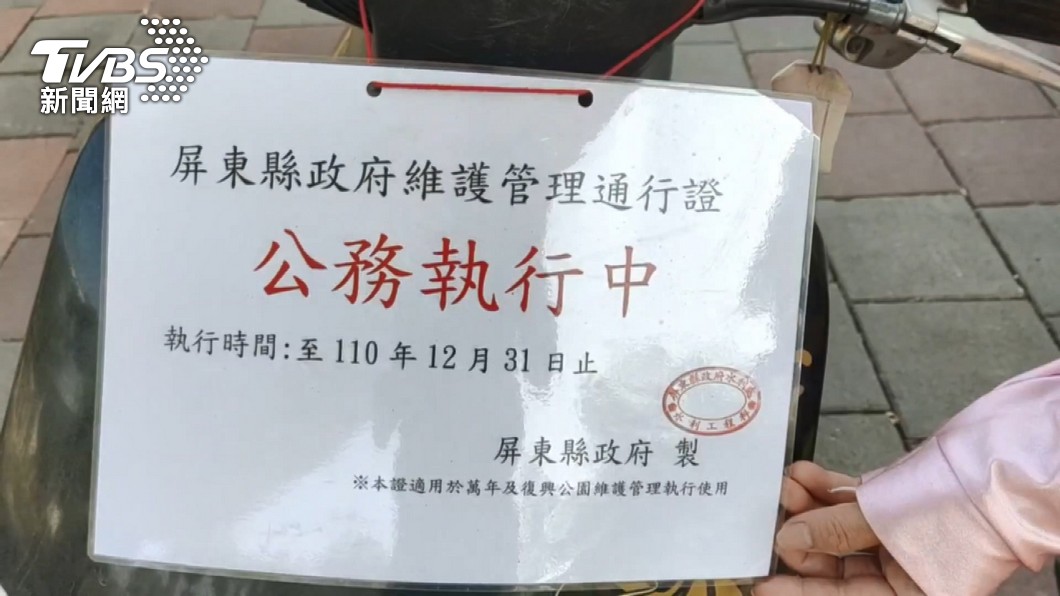 TVBS
新聞網
屏東縣政府維護管理通行證
公務執行中
執行時間:至 110 年 12 月 31 日止
屏東縣政府水利處
水利工程科
屏東縣政府 製
※本證適用於萬年及復興公園維護管理執行使用